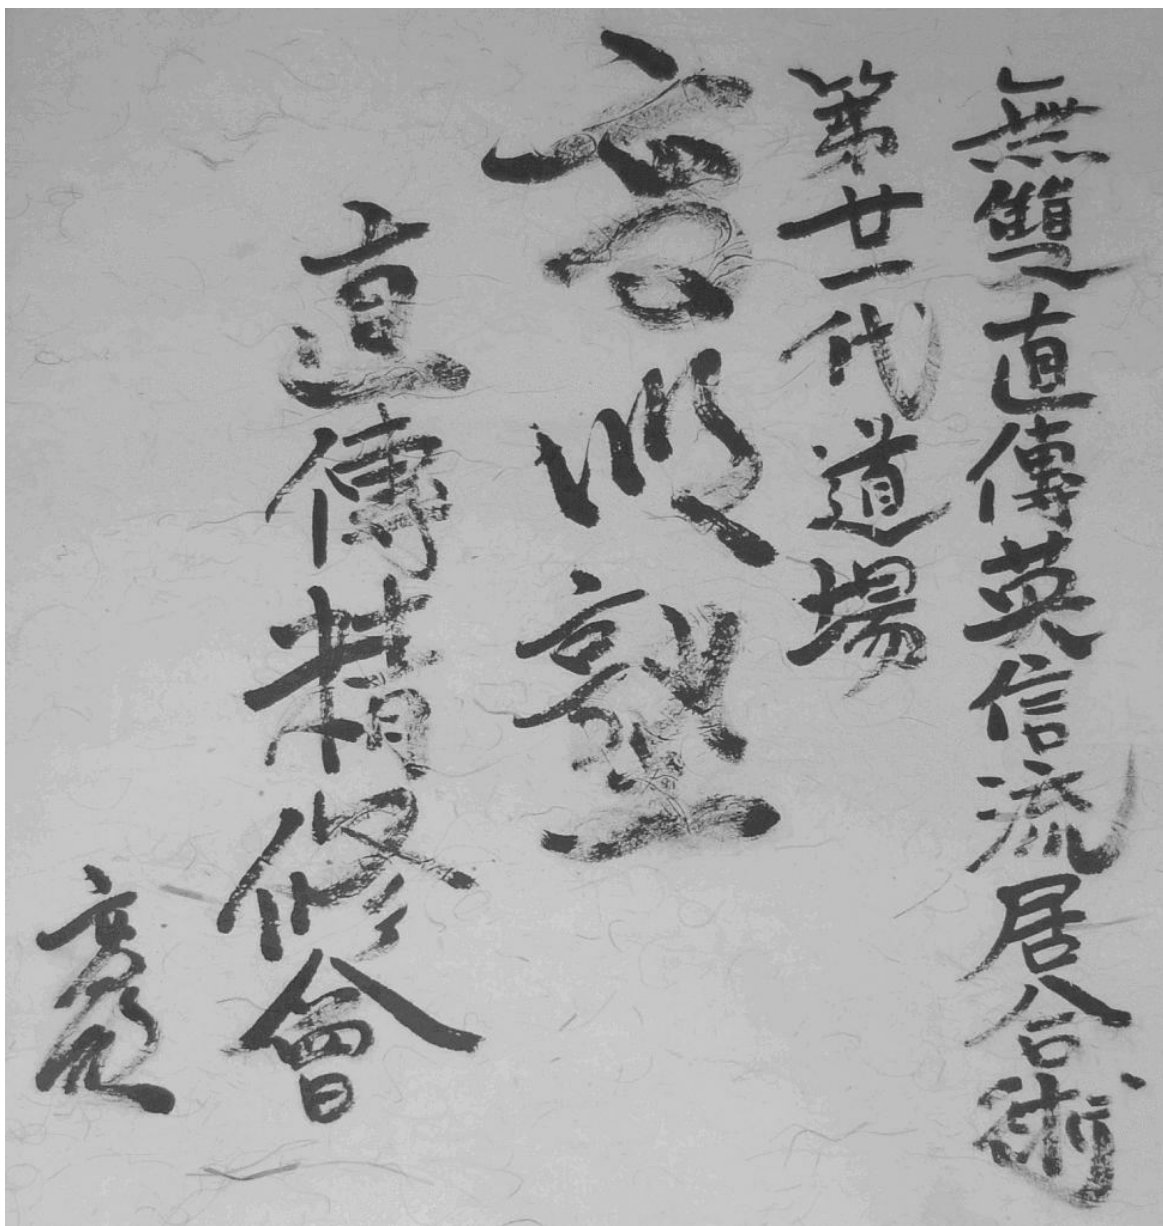 無雙直傳英信流居合術
第廿一代道場
高明塾
直傳精修會